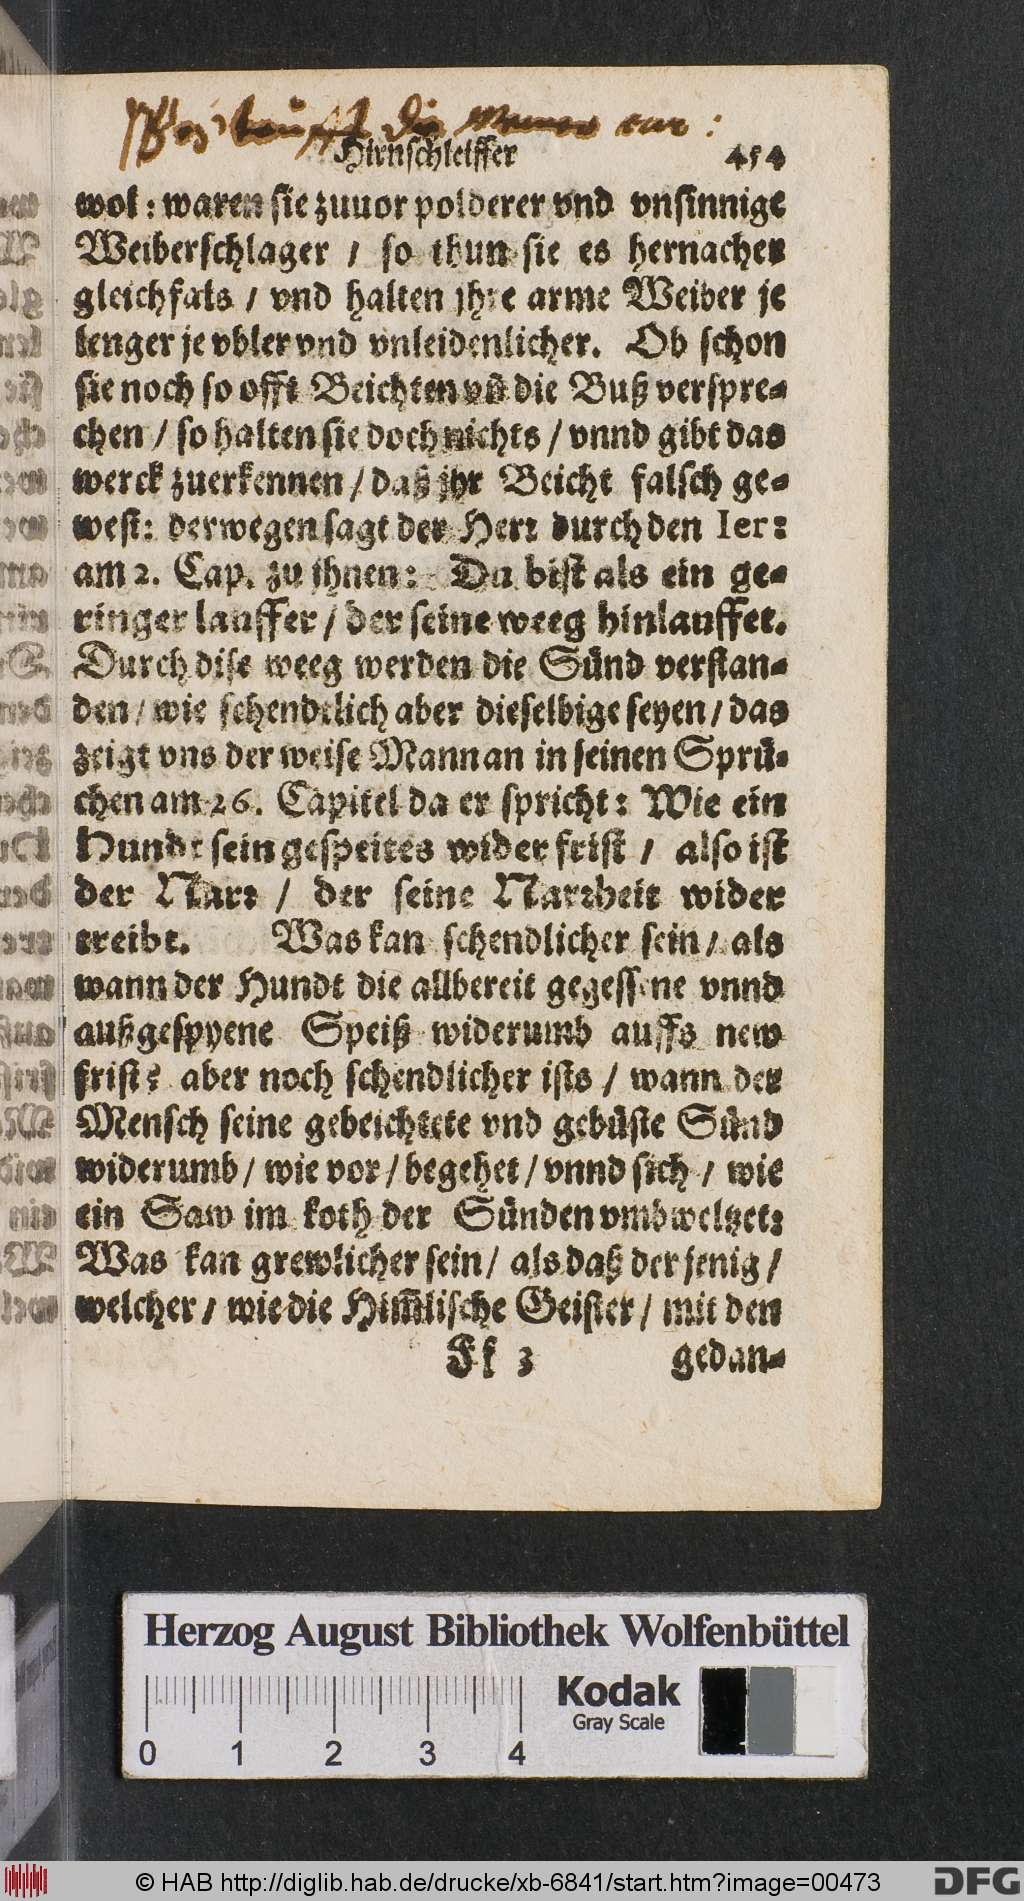 Hirnschleiffer 454
wol: waren sie zuuor polderer vnd vnsinnige
Weiberschlager / so thun sie es hernacher
gleichfals / vnd halten jhre arme Weiber je
lenger je vbler vnd vnleidenlicher. Ob schon
sie noch so offt Beichten vñ die Buß verspre-
chen / so halten sie doch nichts / vnnd gibt das
werck zuerkennen / daß jhr Beicht falsch ge-
west: derwegen sagt der Herꝛ durch den Ier:
am 2. Cap. zu jhnen: Du bist als ein ge-
ringer lauffer / der seine weeg hinlauffet.
Durch dise weeg werden die Sünd verstan-
den / wie schendtlich aber dieselbige seyen / das
zeigt vns der weise Mann an in seinen Sprü-
chen am 26. Capitel da er spricht: Wie ein
Hundt sein gespeites wider frist / also ist
der Narꝛ / der seine Narꝛheit wider
treibt. Was kan schendlicher sein / als
wann der Hundt die allbereit gegessene vnnd
außgespyene Speiß widerumb auffs new
frist? aber noch schendlicher ists / wann der
Mensch seine gebeichtete vnd gebüste Sünd
widerumb / wie vor / begehet / vnnd sich / wie
ein Saw im koth der Sünden vmbweltzet:
Was kan grewlicher sein / als daß der jenig /
welcher / wie die Him̃lische Geister / mit den
Kk 3 gedan-
Herzog August Bibliothek Wolfenbüttel
Kodak
Gray Scale
0 1 2 3 4
© HAB http://diglib.hab.de/drucke/xb-6841/start.htm?image=00473
DFG